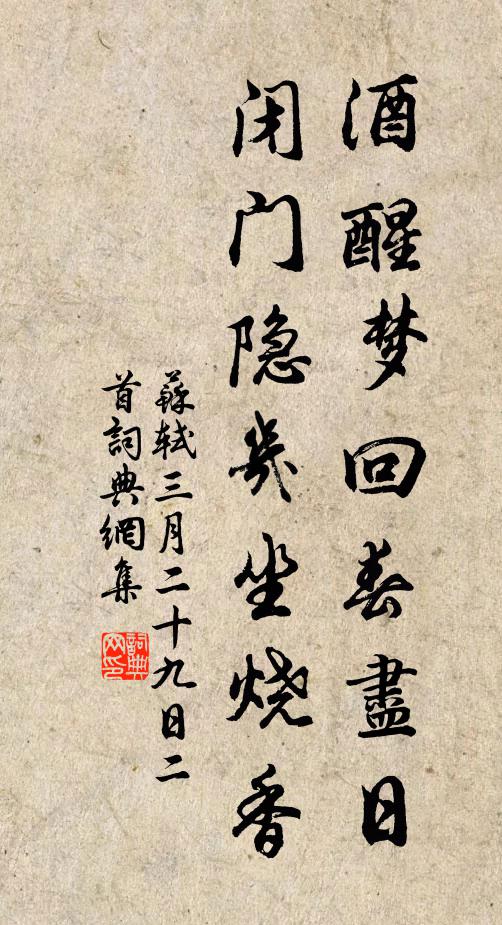 酒醒梦回春盡日
闭门隐幾坐烧香
蘇軾三月二十九日二
首詞典網集
詞典
网印